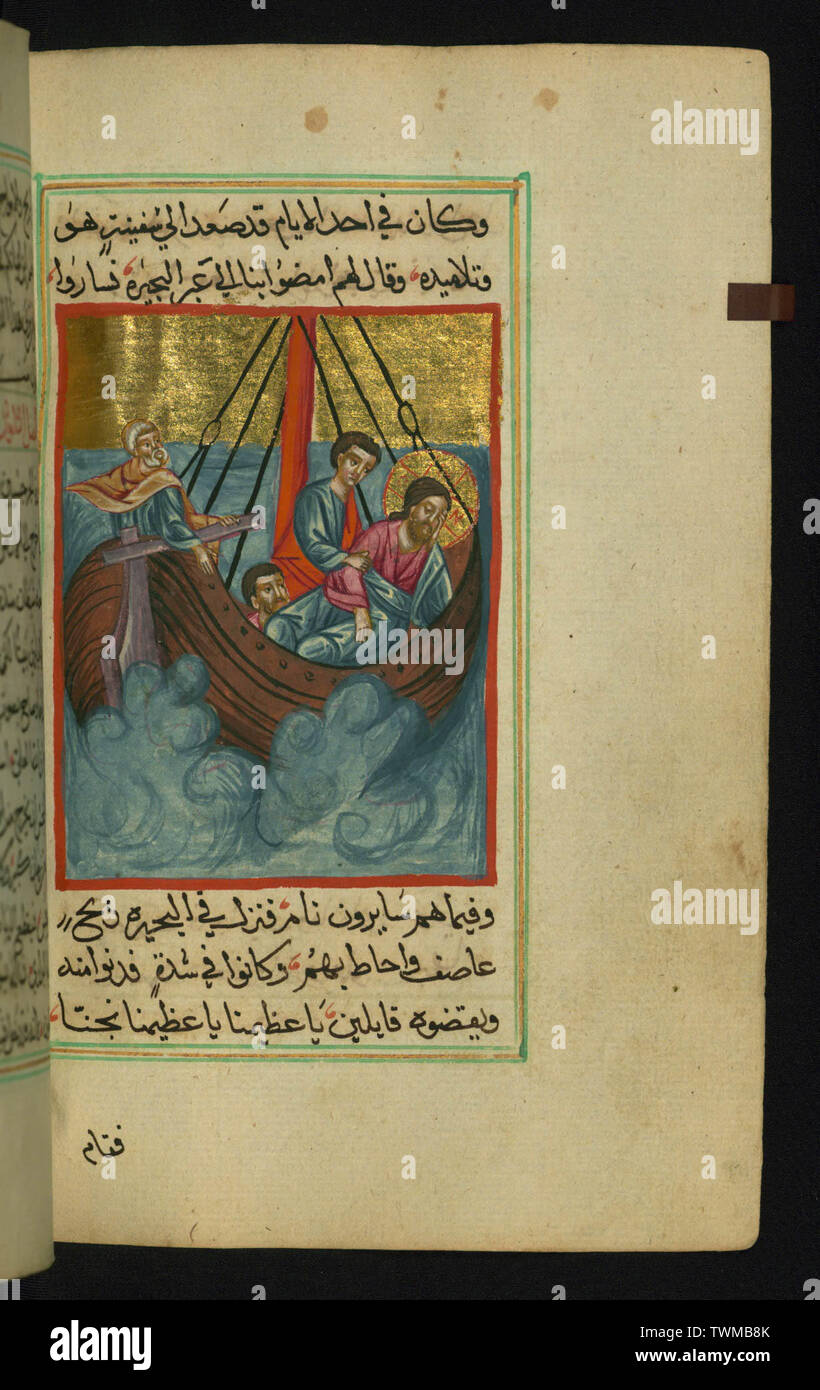 وكان في احد الايام قد صعد الي سفينةٍ هو
وتلاميذه، وقال لهم امضوا بنا الي عبر البحيرة، فساروا،
وفيما هم سايرون نام، فنزل في البحيره ريح
عاصف واحاط بهم، وكانوا في شدةٍ فدنوا منه
ويقضوه قايلين، يا عظيمنا يا عظيمنا نجنا،
فقام
alamy
alamy
alamy
alamy
Image ID: TWMB8K
www.alamy.com